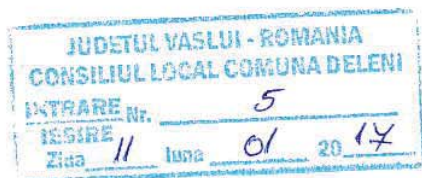 JUDETUL VASLUI - ROMANIA
CONSILIUL LOCAL COMUNA DELENI
INTRARE Nr. 5
IESIRE
Ziua 11 luna 01 2017